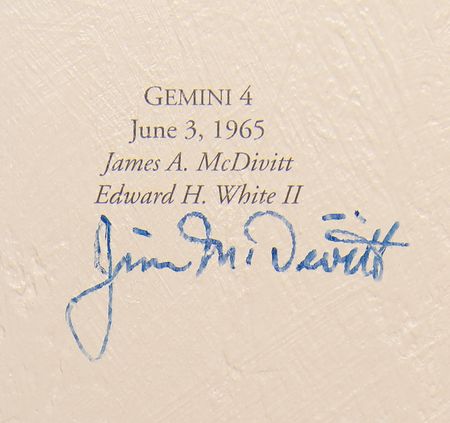 GEMINI 4
June 3, 1965
James A. McDivitt
Edward H. White II
Jim McDivitt